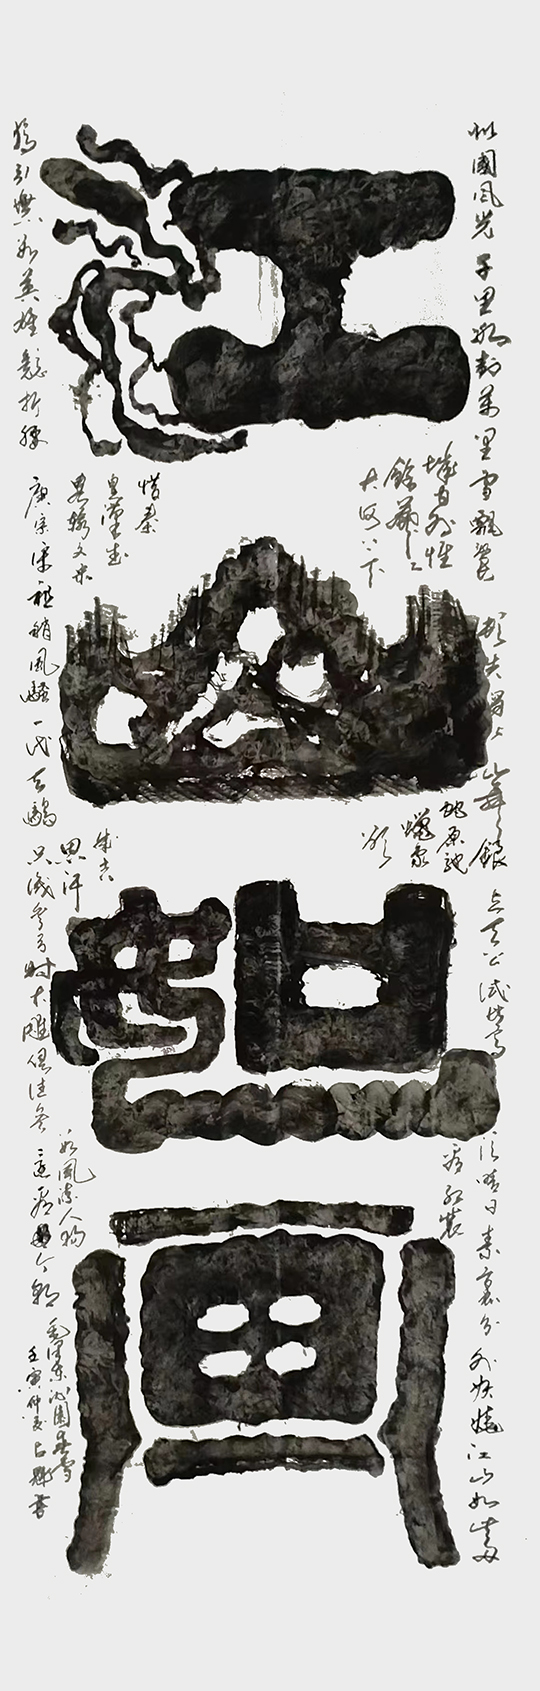 江
山
如
畫
北國風光千里冰封萬里雪飄望
城内外惟
餘莽々
大河上下
頓失滔々山舞銀
蛇原馳
蠟象
欲
与天公試比高
須晴日素裹分外妖嬈江山如此多
看紅裝
嬌引無數英雄競折腰
惜秦
皇漢武
略輸文采
唐宗宋祖稍遜風騷一代天驕
成吉
思汗
只識彎弓射大雕俱往矣
數風流人物
還看今朝
毛澤東沁園春雪
壬寅仲夏
書